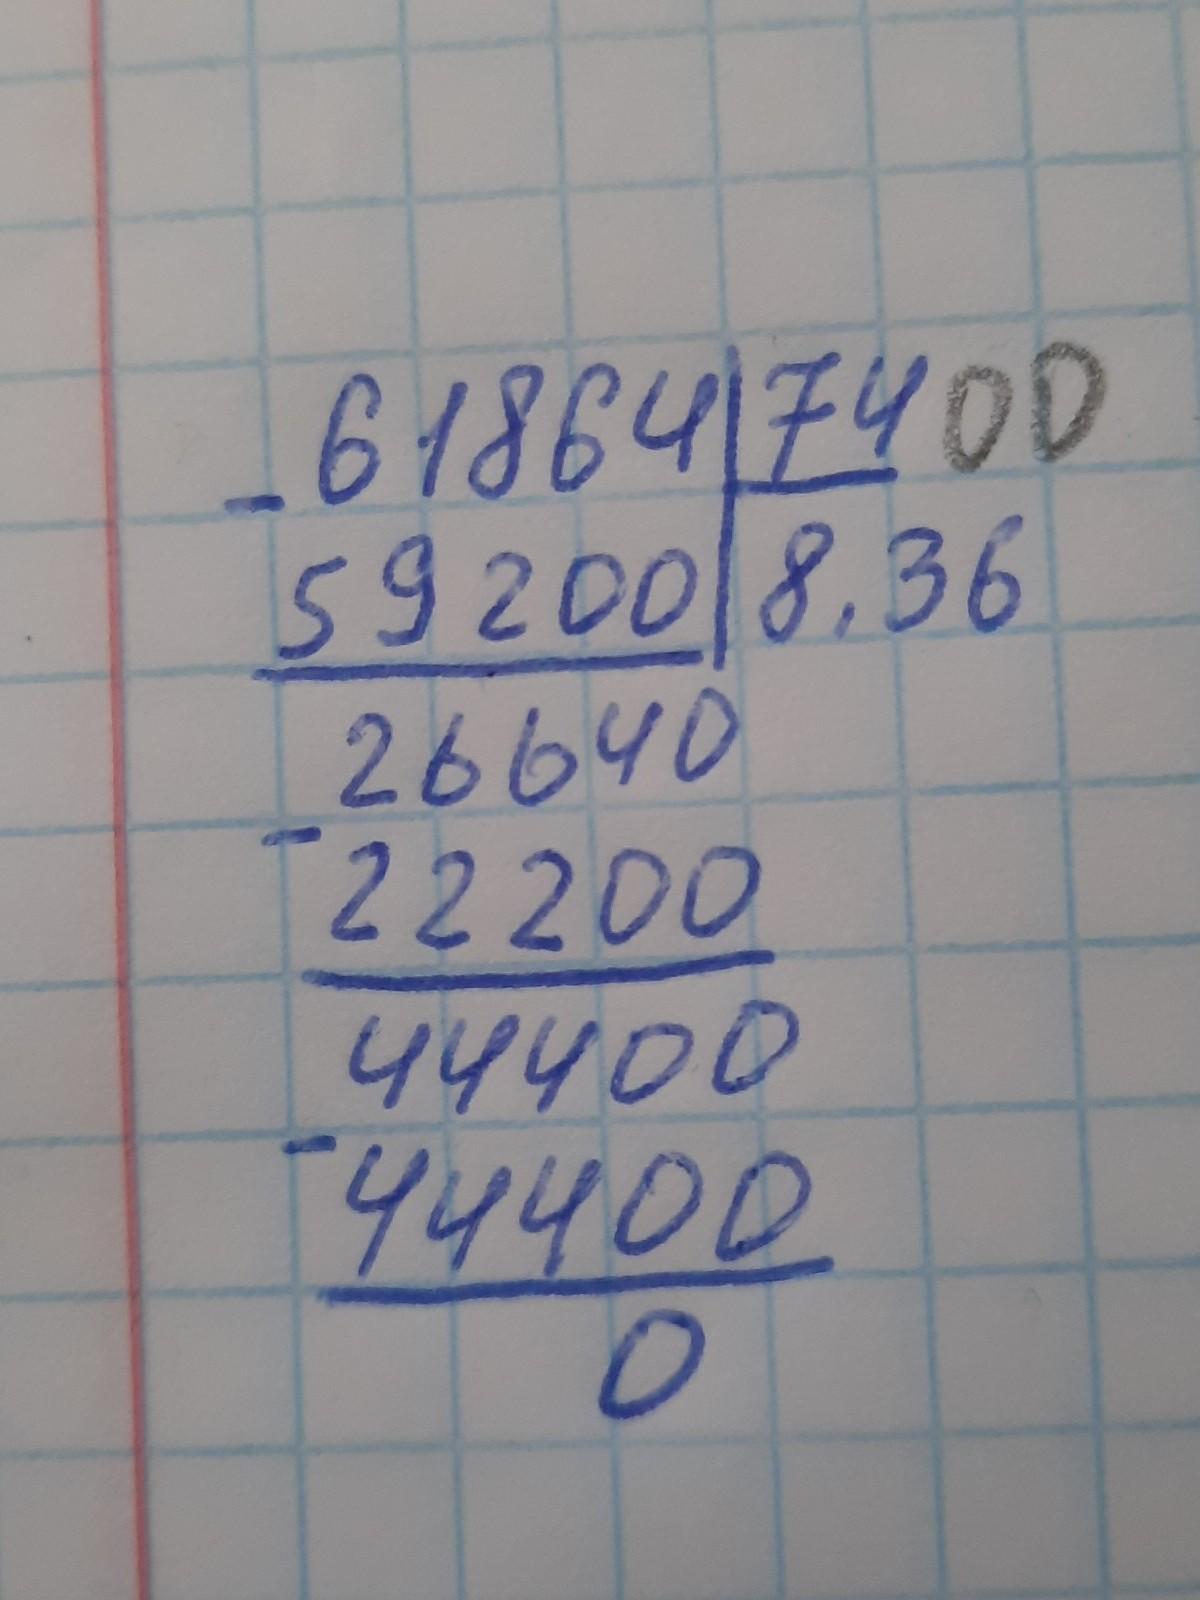 61864 7400
- 59200 8.36
26640
- 22200
44400
- 44400
0